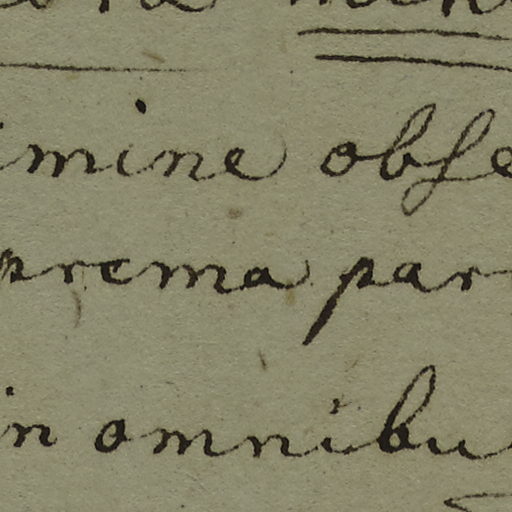 imine obse
prema par
in omnibu